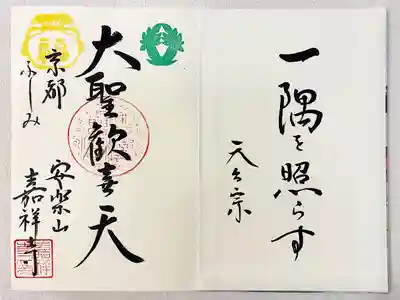 一隅を照らす
天台宗
大聖歓喜天
京都
ふしみ
安楽山
嘉祥寺